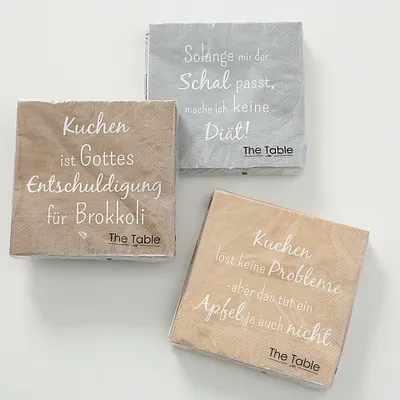 Solange mir der
Schal passt,
mache ich keine
Diät!
The Table
Kuchen
ist Gottes
Entschuldigung
für Brokkoli
The Table
Kuchen
löst keine Probleme
-aber das tut ein
Apfel ja auch nicht.
The Table